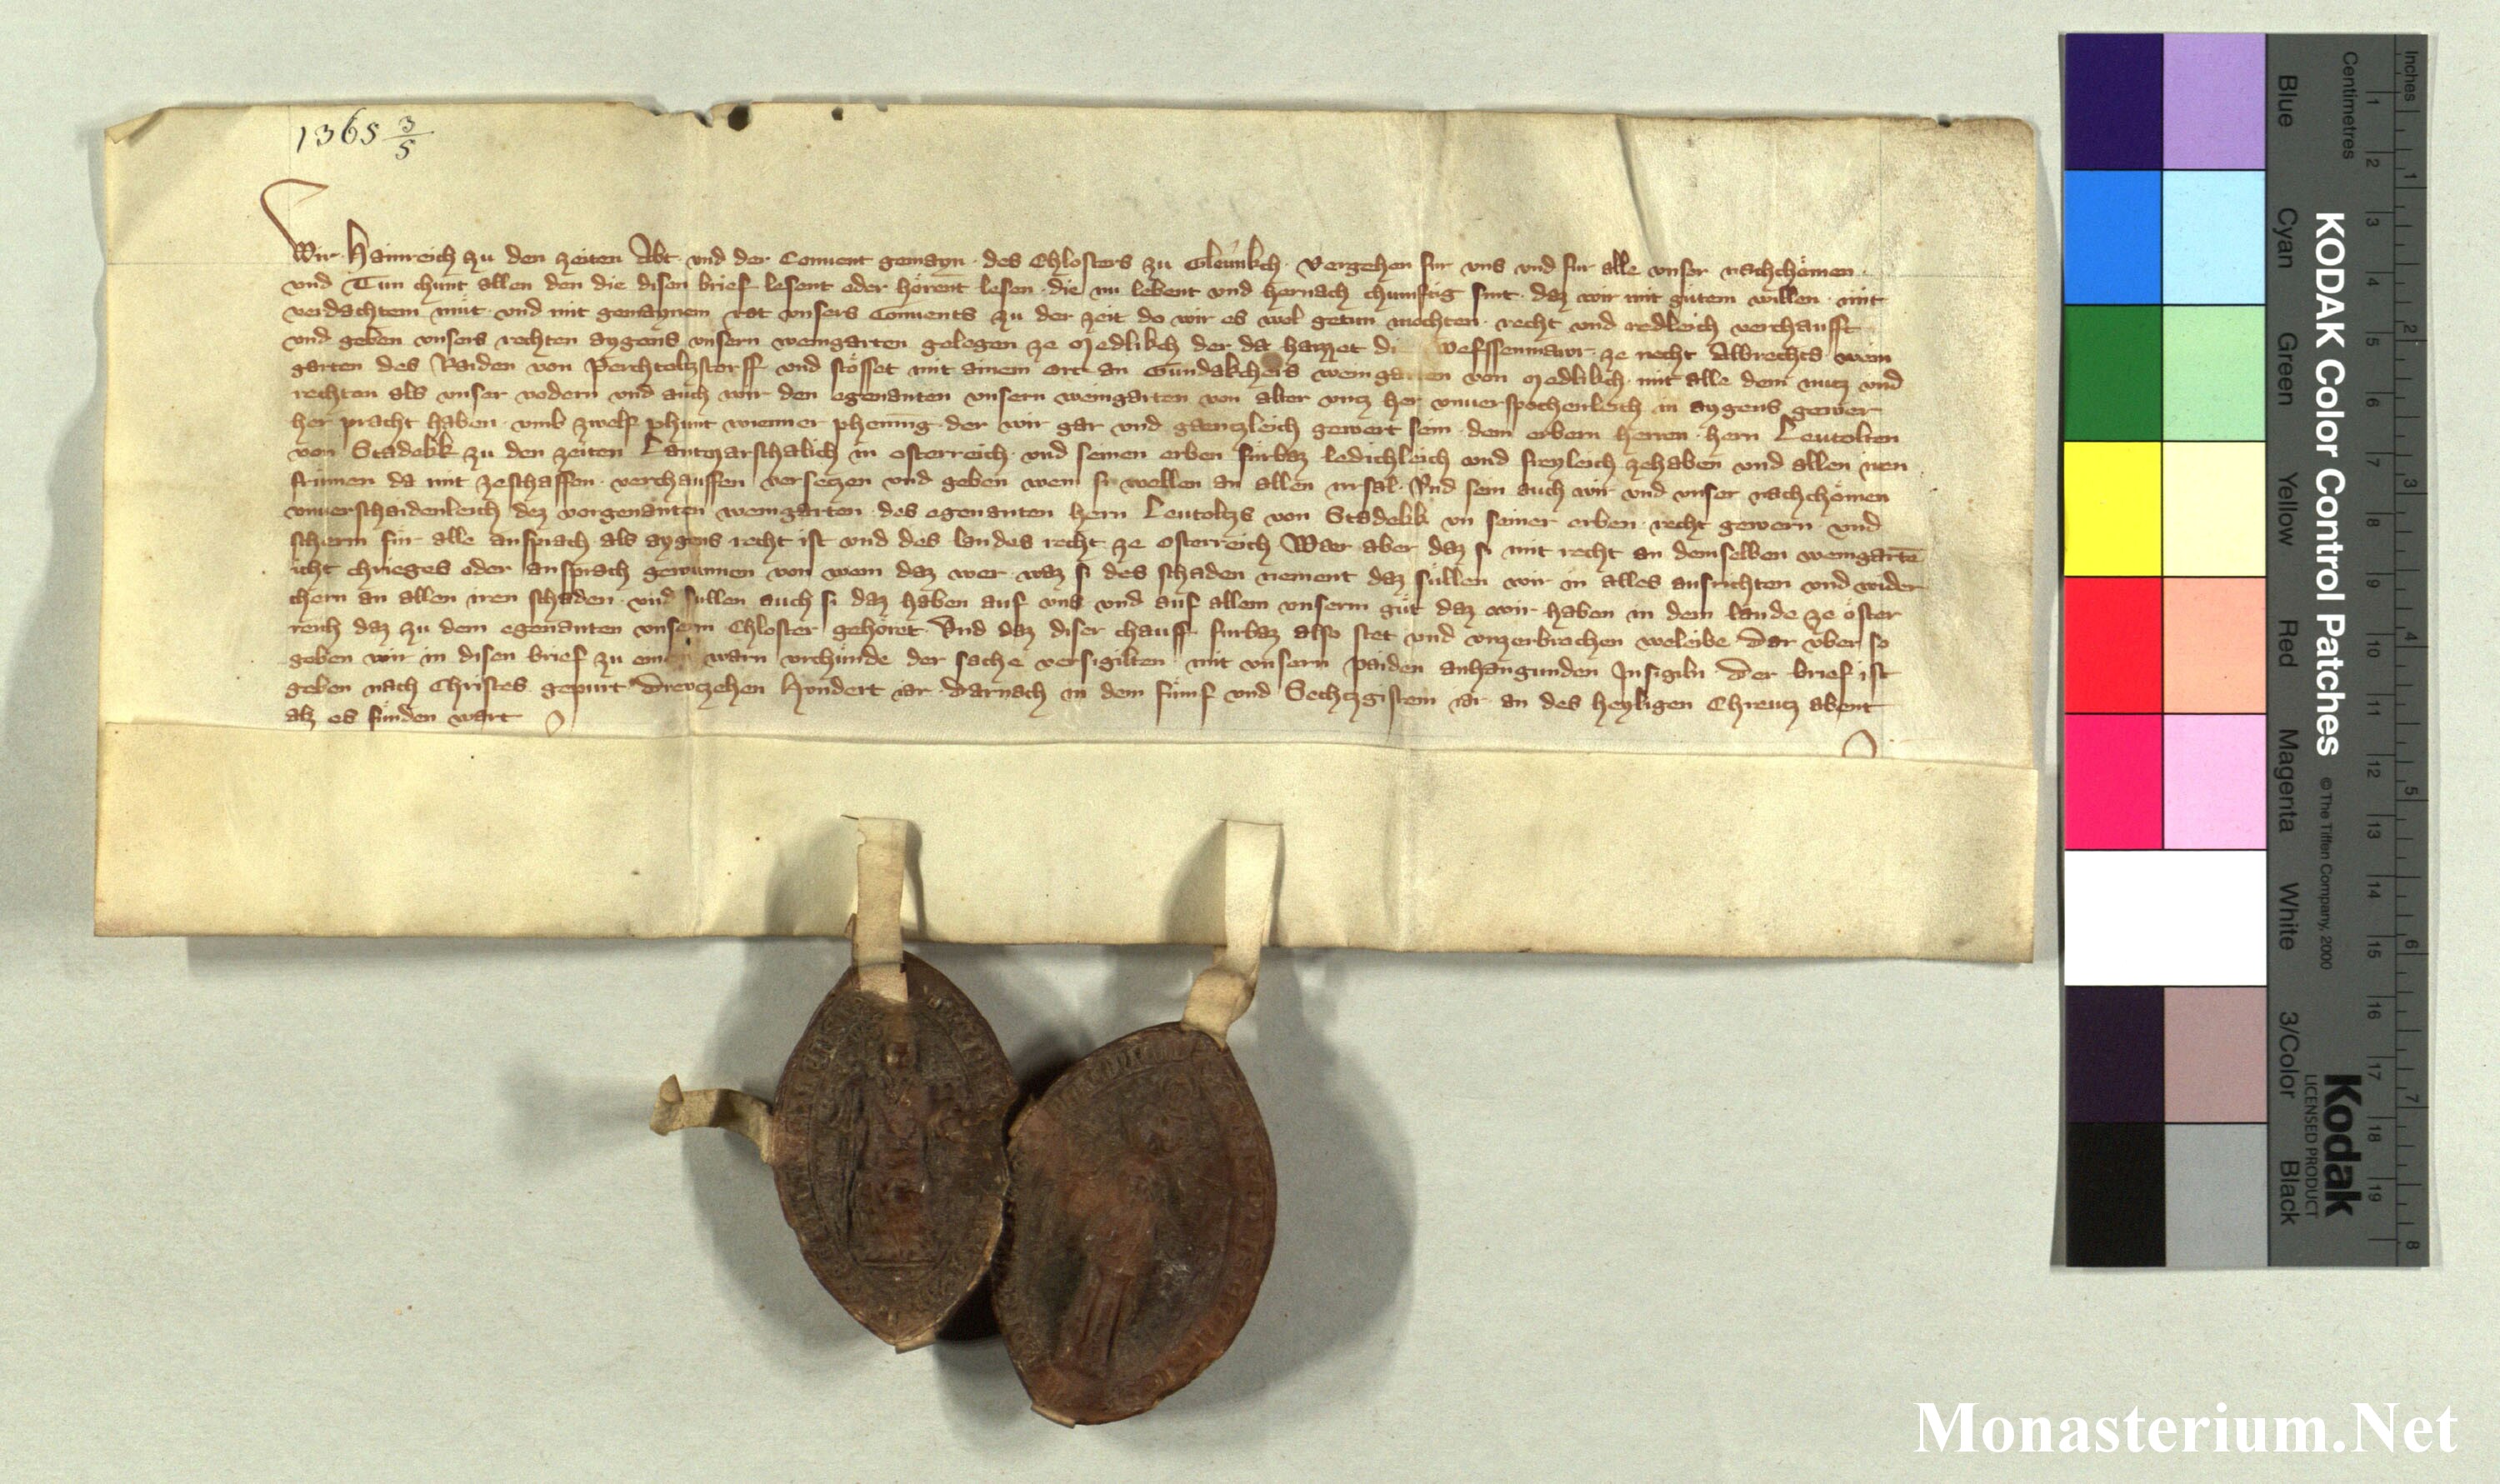 1365 3/5
Wir Hainreich zu den zeiten Abt und der Conuent gemayn des Chlosters zu Gleunkch Vergehen fur uns und fur alle unser nachchömen
und Tun chunt allen den die disen brief lesent oder hörent lesen die nu lebent und hernach chunftig sint daz wir mit gutem willen mit
verdachtem mut und mit gemaynem rat unsers Conuents zu der zeit do wir es wol getun mochten recht und redleich verchaufft
und geben unsers rechten aygens unsern weingarten gelegen ze Medlikch der da haizzet ze nechst Albrechts wein
garten des Raiden von Perchtoltzstorff und stözzet mit ainem ort an Gundakchers weingarten von Medlikch mit alle dem nutz und
rechten als unser vodern und auch wir den egenanten unsern weingarten von alter untz her unuersprochenleich in aygens gewer
her pracht haben umb zwelf phunt wienner phenning der wir gar und gaentzleich gewert sein dem erbern herren hern Leutolten
von Stadekk zu den zeiten Lantmarschalich in osterreich und seinen erben furbaz ledichleich und freyleich zehaben und allen iren
frumen da mit zeschaffen verchauffen versetzen und geben wem si wellen an allen irrsal Und sein auch wir und unser nachchömen
unuerschaidenleich dez vorgenanten weingarten des egenanten hern Leutoltzs von Stadekk un seiner erben recht gewern und
scherm für alle ansprach als aygens recht ist und des landes recht ze osterreich Waer aber daz si mit recht an demselben weingarte
icht chrieges oder ansprach gewunnen von wem daz wer waz si des schaden nement daz sullen wir in alles ausrichten und wider
chern an allen iren schaden und sullen auch si daz haben auf uns und auf allem unserm gut daz wir haben in dem lande ze öster
reich daz zu dem egenanten unserm Chloster gehöret Und daz diser chauff furbaz also stet und unzerbrochen weleibe Dar uber so
geben wir in disen brief zu einem warn urchunde der sache versigilten mit unsern paiden anhangunden Insigiln Der brief ist
geben nach Christes gepurt Dreutzehen Hundert iar Darnach in dem fümf und Sechtzgistem iar an des heyligen Chreutz abent
alz es funden wart
Inches
Centimetres
1 2 3 4 5 6 7 8 9 10 11 12 13 14 15 16 17 18 19
1 2 3 4 5 6 7 8
KODAK Color Control Patches
© The Tiffen Company, 2000
Kodak
LICENSED PRODUCT
Blue
Cyan
Green
Yellow
Red
Magenta
White
3/Color
Black
Monasterium.Net